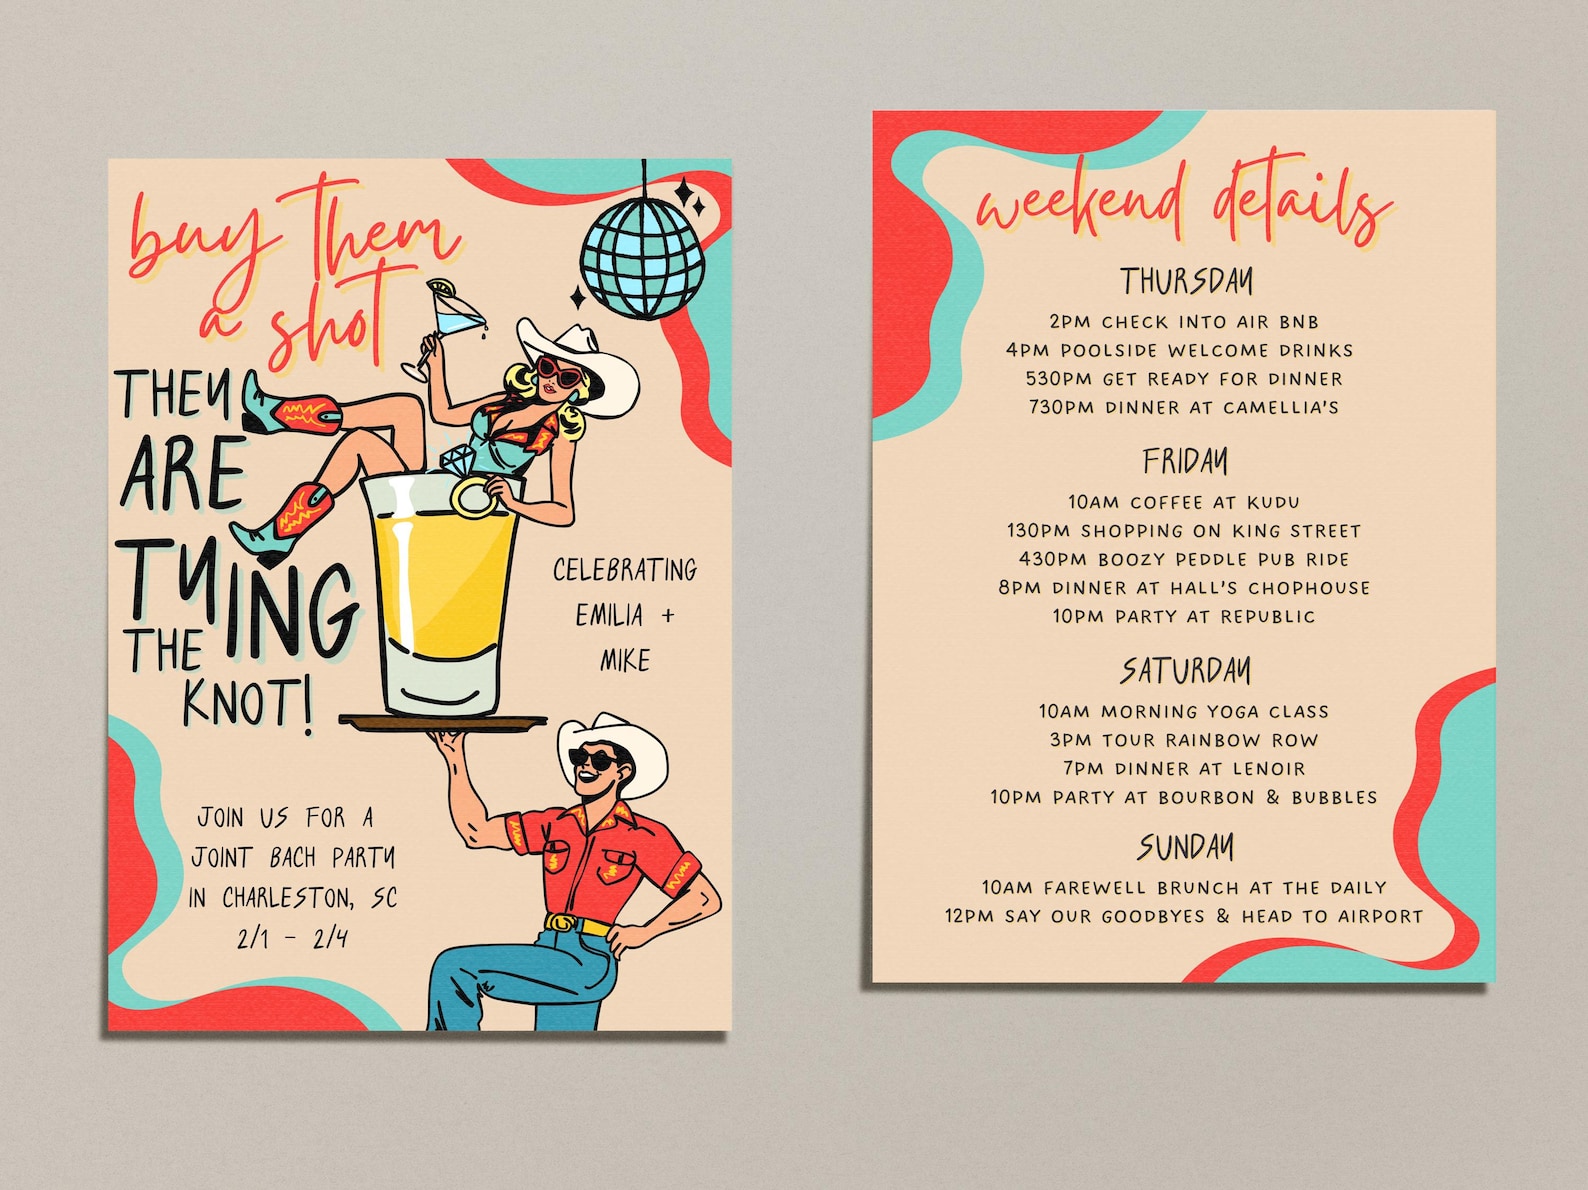 buy them
a shot
THEY
ARE
TYING
THE
KNOT!
CELEBRATING
EMILIA +
MIKE
JOIN US FOR A
JOINT BACH PARTY
IN CHARLESTON, SC
2/1 - 2/4
weekend details
THURSDAY
2PM CHECK INTO AIR BNB
4PM POOLSIDE WELCOME DRINKS
530PM GET READY FOR DINNER
730PM DINNER AT CAMELLIA'S
FRIDAY
10AM COFFEE AT KUDU
130PM SHOPPING ON KING STREET
430PM BOOZY PEDDLE PUB RIDE
8PM DINNER AT HALL'S CHOPHOUSE
10PM PARTY AT REPUBLIC
SATURDAY
10AM MORNING YOGA CLASS
3PM TOUR RAINBOW ROW
7PM DINNER AT LENOIR
10PM PARTY AT BOURBON & BUBBLES
SUNDAY
10AM FAREWELL BRUNCH AT THE DAILY
12PM SAY OUR GOODBYES & HEAD TO AIRPORT